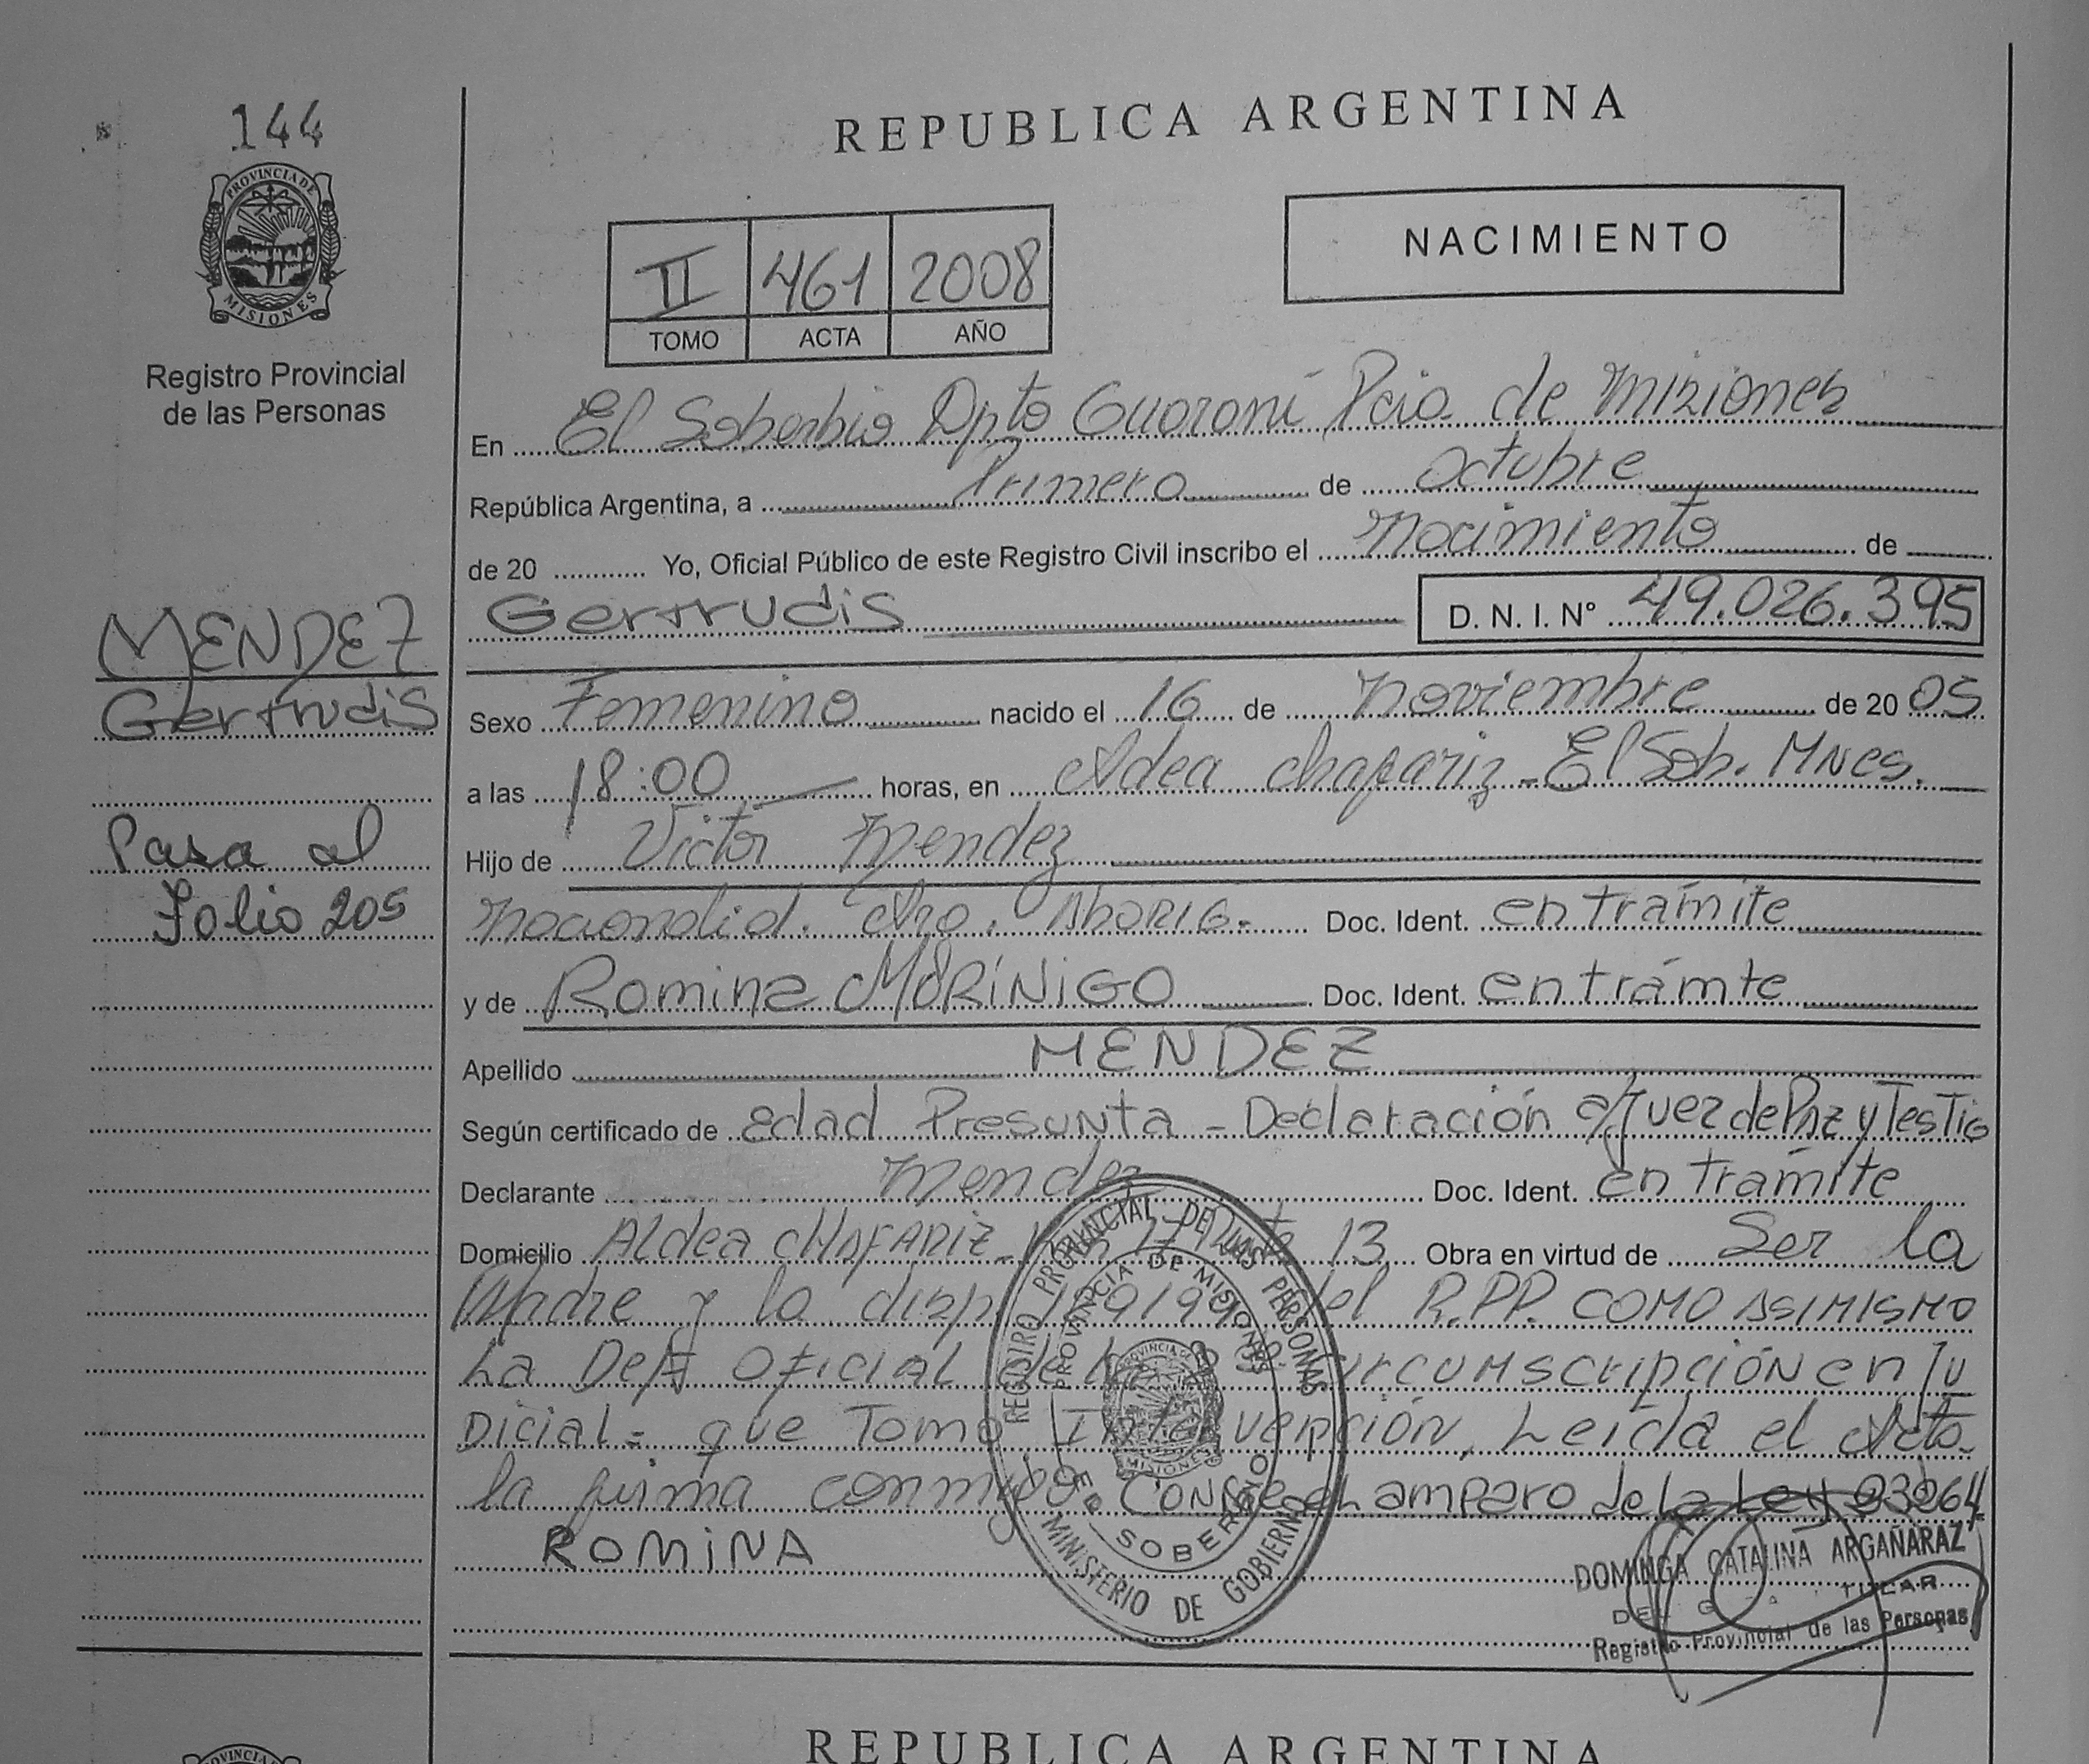 144
PROVINCIA DE
MISIONES
Registro Provincial
de las Personas
REPUBLICA ARGENTINA
NACIMIENTO
II 461 2008
TOMO ACTA AÑO
En El Soberbio Dpto Guaraní Pcia. de Misiones
República Argentina, a Primero de Octubre
de 20 ............ Yo, Oficial Público de este Registro Civil inscribo el Nacimiento de
Gertrudis D. N. I. N° 49.026.395
MENDEZ
Gertrudis
Pasa al
Folio 205
Sexo Femenino nacido el 16 de Noviembre de 20 05
a las 18:00 horas, en Aldea Chafariz - El Sob. Mnes.
Hijo de Victor Mendez
Nacionalid. Arg. ABORIG. Doc. Ident. en trámite
y de Romina MORÍNIGO Doc. Ident. en trámte
Apellido MENDEZ
Según certificado de edad Presunta - Declaración a/Juez de Paz y Testig
Declarante Mendez Doc. Ident. en Trámite
Domicilio Aldea CHAFARIZ - 13 Obra en virtud de Ser la
Madre y la disp. del R.P.P. COMO ASIMISMO
La Def Oficial de la circumscripción en Ju
Dicial - que Tomó Intervención, Leída el Acta
la firma conmigo CONSTE el amparo de la Ley
ROMINA
REGISTRO PROVINCIAL DE LAS PERSONAS
PROVINCIA DE MISIONES
PROVINCIA DE
MISIONES
EL SOBERBIO
MINISTERIO DE GOBIERNO
DOMINGA CATALINA ARGAÑARAZ
TITULAR
Registro Provincial de las Personas
PROVINCIA DE
REPUBLICA ARGENTINA